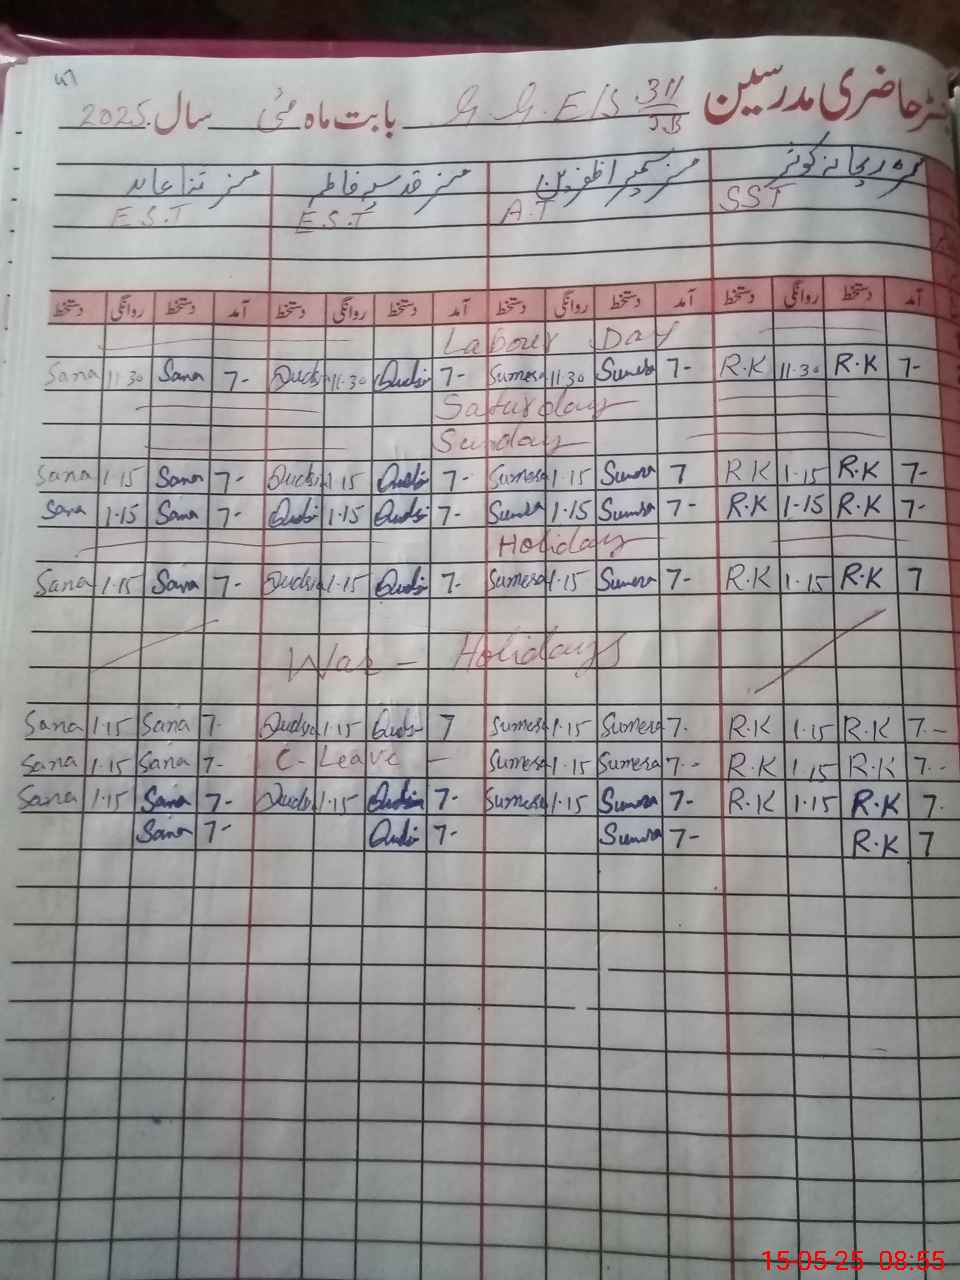 رجسٹر حاضری مدرسین G. G. E/S 311/JB بابت ماہ مئی سال 2025
SST A.T E.S.T E.S.T
آمد دستخط روانگی دستخط آمد دستخط روانگی دستخط آمد دستخط روانگی دستخط آمد دستخط روانگی دستخط
Labour Day
7- R.K 11.30 R.K 7- Sumera 11.30 Sumera 7- Qudsia 11.30 Qudsia 7- Sana 11.30 Sana
Saturday
Sunday
7- R.K 1.15 R.K 7 Sumera 1.15 Sumera 7- Qudsia 1.15 Qudsia 7- Sana 1.15 Sana
7- R.K 1-15 R.K 7- Sumera 1.15 Sumera 7- Qudsia 1.15 Qudsia 7- Sana 1.15 Sana
Holiday
7 R.K 1.15 R.K 7- Sumera 1.15 Sumera 7- Qudsia 1.15 Qudsia 7- Sana 1.15 Sana
War - Holidays
7.- R.K 1.15 R.K 7. Sumera 1.15 Sumera 7 Qudsia 1.15 Qudsia 7. Sana 1.15 Sana
7.- R.K 1.15 R.K 7.- Sumera 1.15 Sumera C- Leave - 7- Sana 1.15 Sana
7. R.K 1.15 R.K 7- Sumera 1.15 Sumera 7- Qudsia 1.15 Qudsia 7- Sana 1.15 Sana
7 R.K 7- Sumera 7- Qudsia 7- Sana
15-05-25 08:55